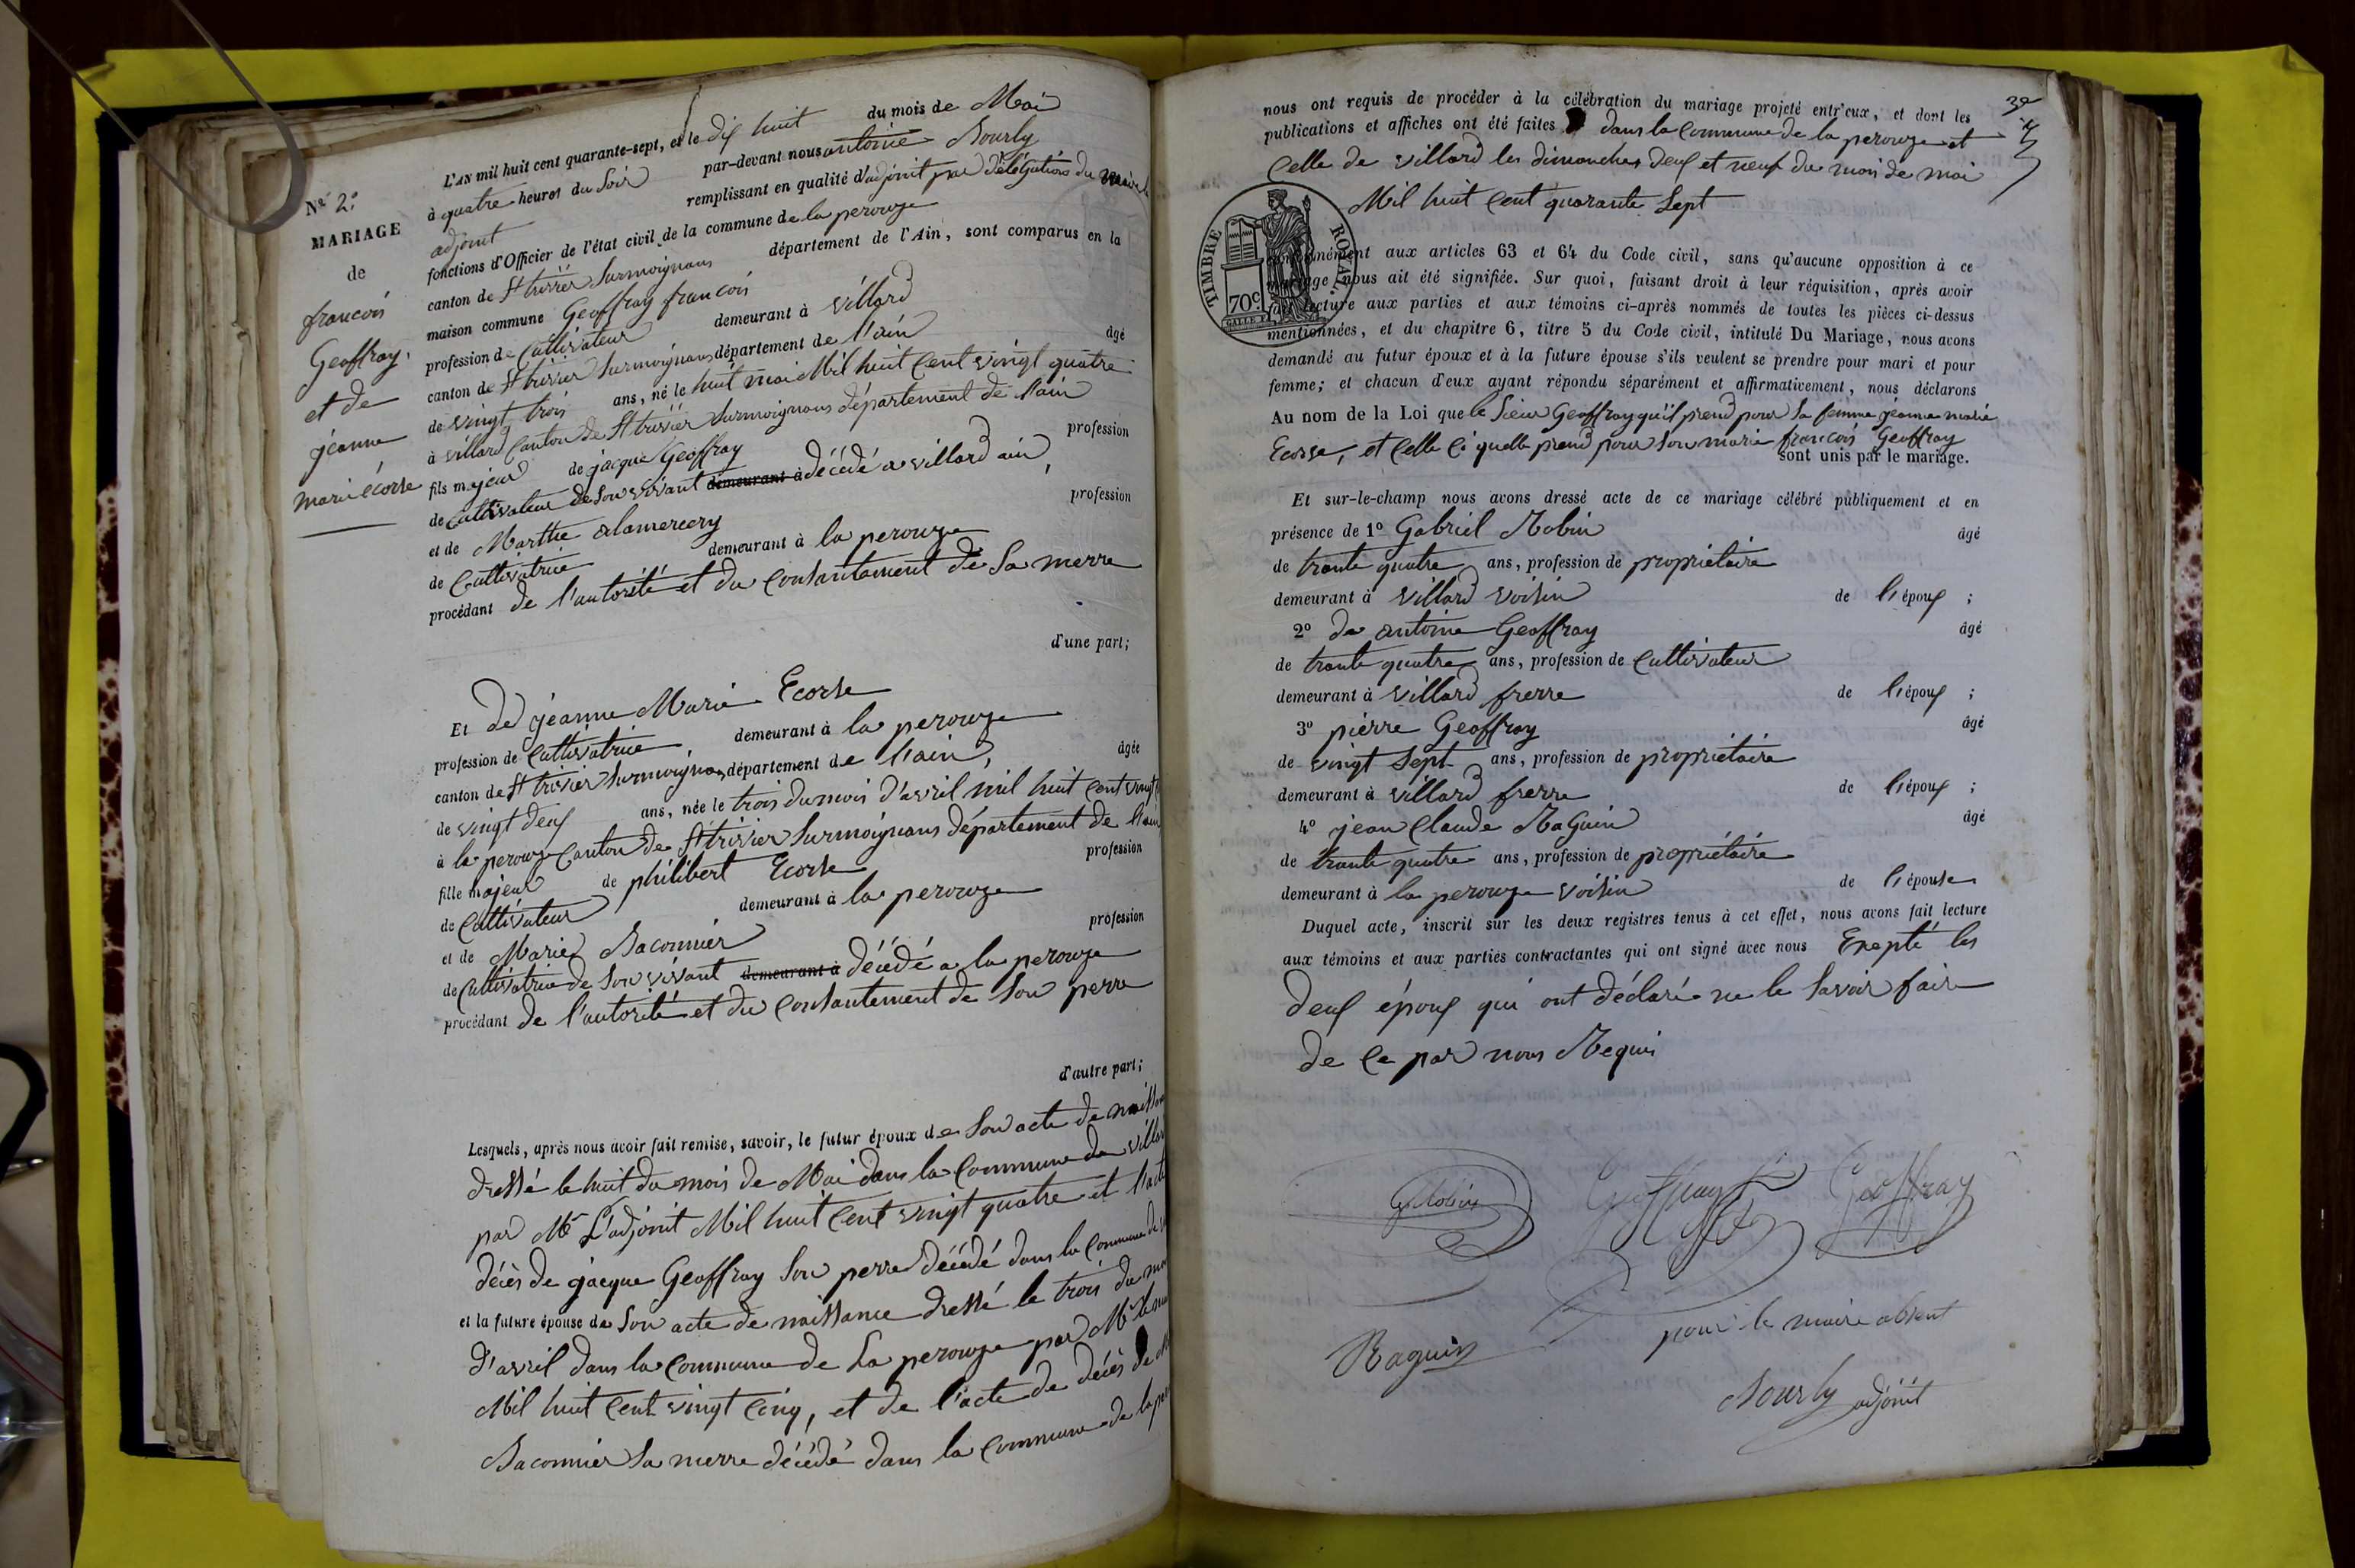 L'AN mil huit cent quarante-sept, et le dix huit du mois de Mai
à quatre heures du soir par-devant nous antoine Bourly
adjoint remplissant en qualité d'adjoint par délégation du maire
fonctions d'Officier de l'état civil de la commune de la perouze
canton de St trivier Surmoignans département de l'Ain, sont comparus en la
maison commune Geoffray francois
profession de Cultivateur demeurant à villard
canton de St trivier Surmoignans département de l'ain âgé
de vingt trois ans, né le huit mai Mil huit Cent vingt quatre
à villard Canton de St trivier Surmoignans département de l'ain
fils majeur de jacque Geoffray profession
de Cultivateur de Son vivant demeurant à décédé a villard ain
et de Marthe alamercery profession
de Cultivatrice demeurant à la perouze
procédant de l'autorité et du Consantement de Sa merre
d'une part;
Nº 2.
MARIAGE
de
francois
Geoffray.
et de
jeanne
marie écorse
Et de jeanne Marie Ecorse
profession de Cultivatrice, demeurant à la perouze
canton de St trivier Surmoignans département de l'ain, âgée
de vingt deux ans, née le trois du mois d'avril mil huit Cent vingt
à la perouze Canton de St trivier Surmoignans département de l'ain
fille majeur de philibert Ecorse profession
de Cultivateur demeurant à la perouze
et de Marie Baconnier profession
de Cultivatrice de Son vivant demeurant à décédé a la perouze
procédant de l'autorité et du Consantement de Son perre
d'autre part;
Lesquels, après nous avoir fait remise, savoir, le futur époux de Son acte de
dressé le huit du mois de Mai dans la Commune de
par Mr L'adjoint Mil huit Cent vingt quatre et
décès de jacque Geoffray Son perre décédé dans la Commune de
et la future épouse de Son acte de naissance dressé le trois du
d'avril dans la Commune de La perouze par Mr
Mil huit Cent vingt Cinq, et de l'acte de décès de
Baconnier Sa merre décédé dans la Commune de
nous ont requis de procéder à la célébration du mariage projeté entr'eux, et dont les
publications et affiches ont été faites dans la Commune de la perouze et
Celle de villard les dimanches deux et neuf du mois de mai
Mil huit Cent quarante Sept
TIMBRE ROYAL
70c
conformément aux articles 63 et 64 du Code civil, sans qu'aucune opposition à ce
mariage nous ait été signifiée. Sur quoi, faisant droit à leur réquisition, après avoir
fait lecture aux parties et aux témoins ci-après nommés de toutes les pièces ci-dessus
mentionnées, et du chapitre 6, titre 5 du Code civil, intitulé Du Mariage, nous avons
demandé au futur époux et à la future épouse s'ils veulent se prendre pour mari et pour
femme; et chacun d'eux ayant répondu séparément et affirmativement, nous déclarons
Au nom de la Loi que le Sieur Geoffray qu'il prend pour Sa femme jeanne marie
Ecorse, et Celle Ci quelle prend pour Son marie francois Geoffray
sont unis par le mariage.
Et sur-le-champ nous avons dressé acte de ce mariage célébré publiquement et en
présence de 1º Gabriel Robin âgé
de trante quatre ans, profession de propriétaire
demeurant à villard voisin de l'époux ;
2º de antoine Geoffray âgé
de trante quatre ans, profession de Cultivateur
demeurant à villard frerre de l'époux ;
3º pierre Geoffray âgé
de vingt Sept ans, profession de propriétaire
demeurant à villard frerre de l'époux ;
4º jean Claude Raguin âgé
de trante quatre ans, profession de propriétaire
demeurant à la perouze voisin de l'épouse
Duquel acte, inscrit sur les deux registres tenus à cet effet, nous avons fait lecture
aux témoins et aux parties contractantes qui ont signé avec nous Exepté les
deux époux qui ont déclaré ne le Savoir faire
de Ce par nous Requis
G Robin Geoffray Geoffray
Raguin
pour le maire absent
Bourly adjoint